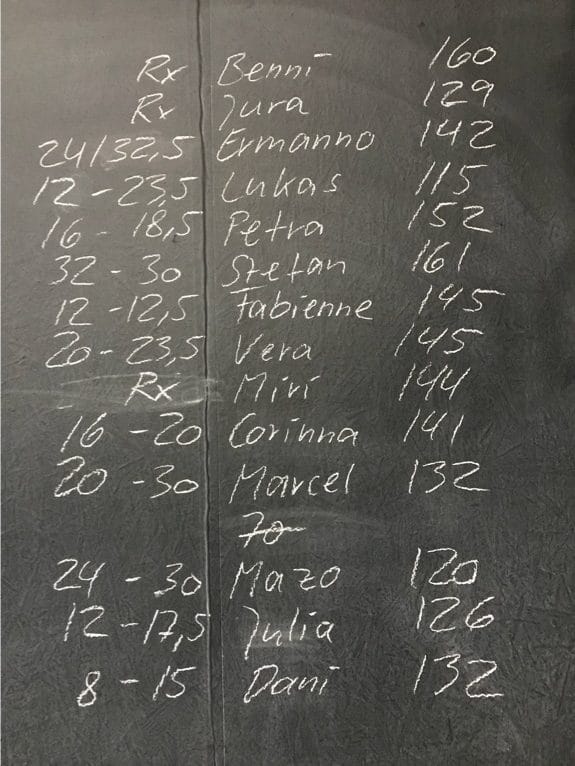 Rx Benni 160
Rx Jura 129
24/32,5 Ermanno 142
12 - 23,5 Lukas 115
16 - 18,5 Petra 152
32 - 30 Stefan 161
12 - 12,5 Fabienne 145
20 - 23,5 Vera 145
Rx Miri 144
16 - 20 Corinna 141
20 - 30 Marcel 132
70
24 - 30 Mazo 120
12 - 17,5 Julia 126
8 - 15 Dani 132